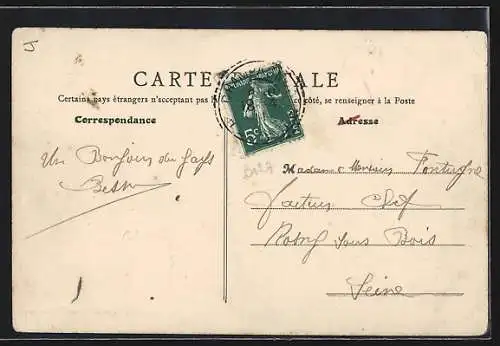 J
CARTE POSTALE
Certains pays étrangers n'acceptant pas côté, se renseigner à la Poste
Correspondance
Adresse
5c
Un Bonjour du Pays
Madame Monsieur
Facteur Chef
Rosny sous Bois
Seine